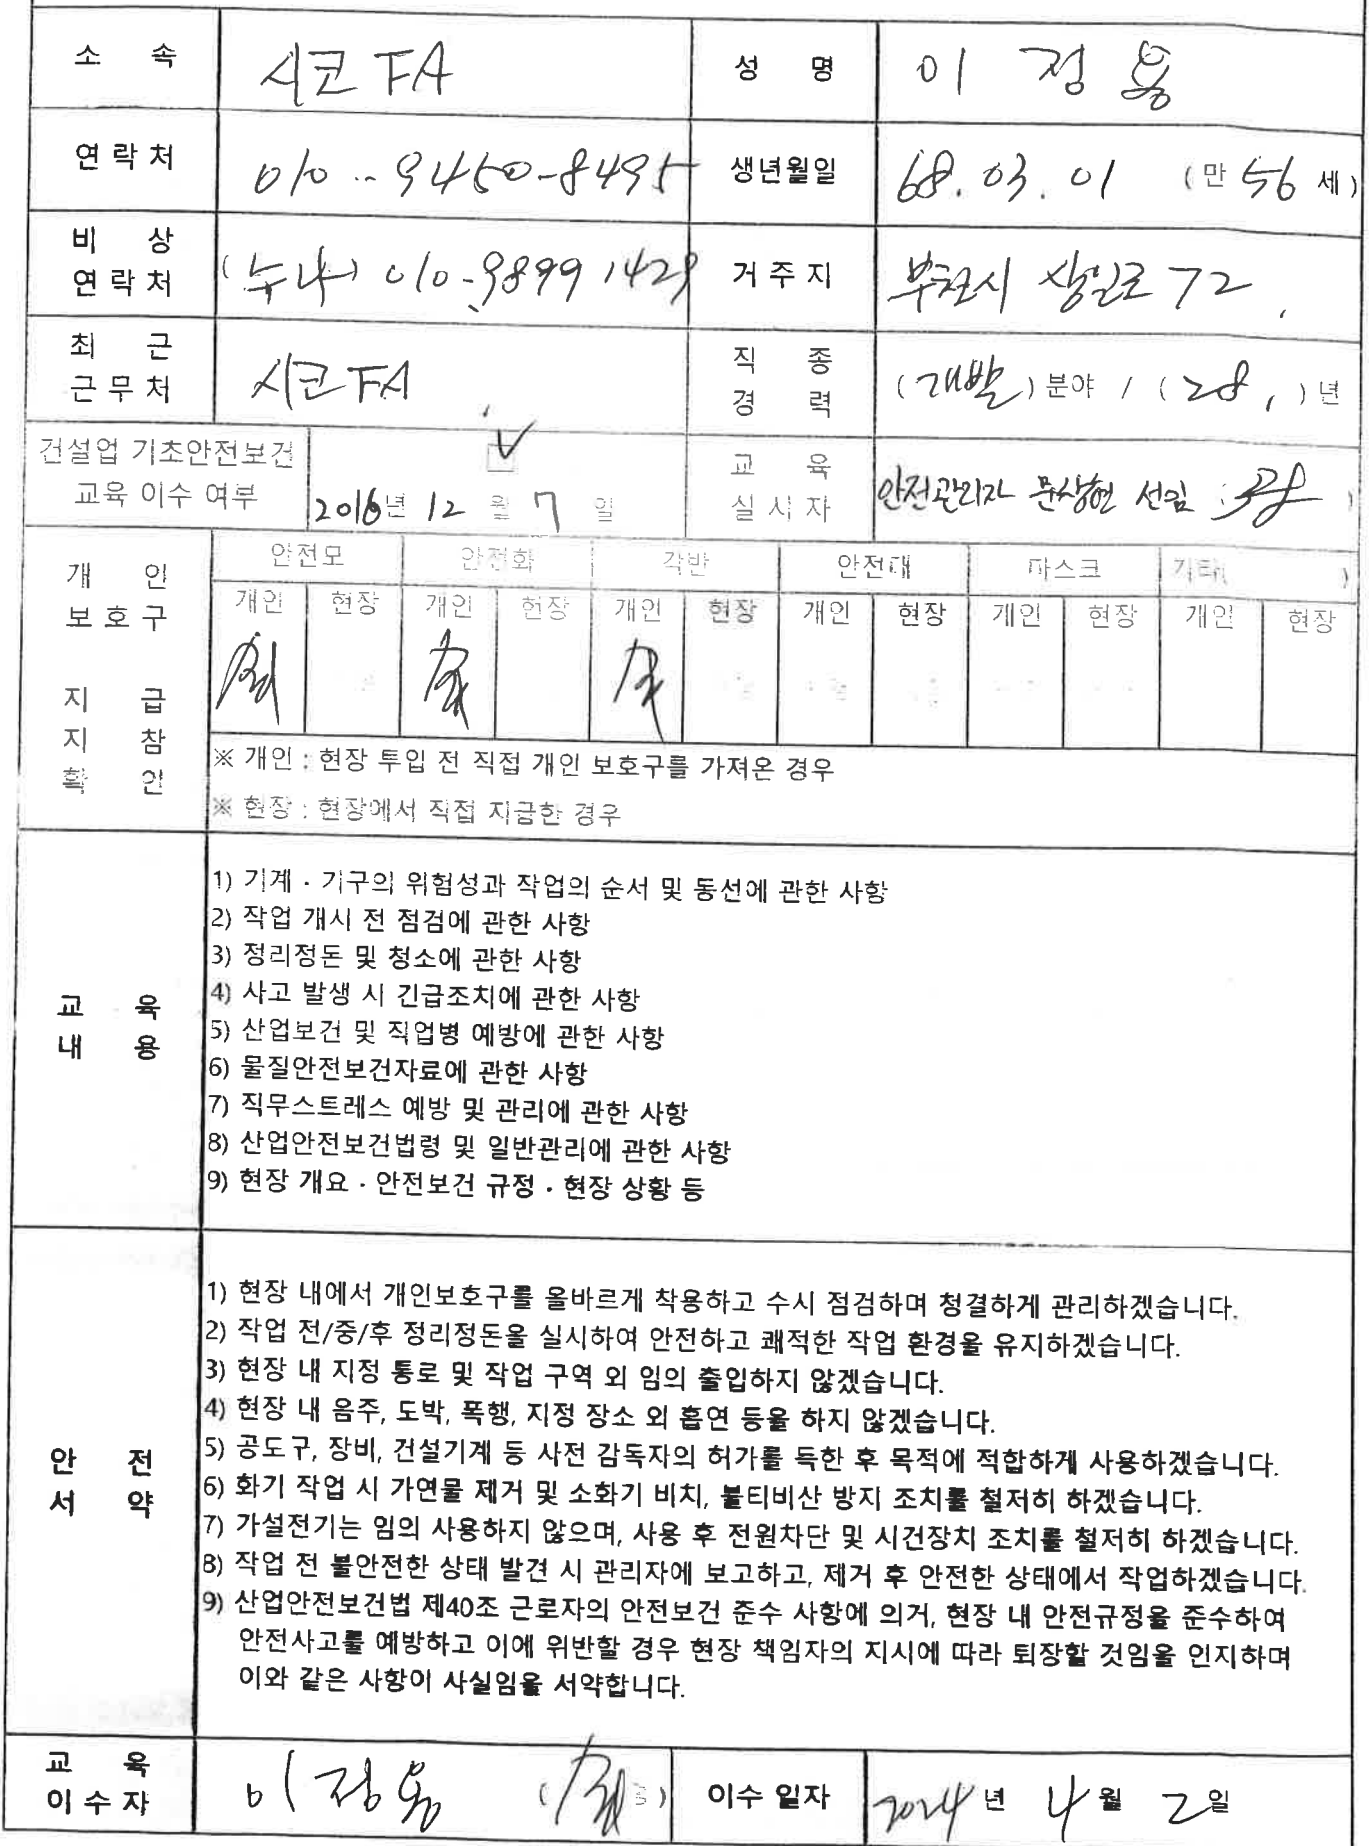 소 속 시코 FA 성 명 이정용
연락처 010-9450-8495 생년월일 68.03.01 (만 56 세)
비 상 연락처 (누나) 010-9899 1429 거주지 부천시 상일로 72
최 근 근무처 시코 FA 직 종 경 력 (개발) 분야 / (28) 년
건설업 기초안전보건 교육 이수 여부 2016년 12 월 7 일 교 육 실시자 안전관리자 문상현 선임
개 인 보호구 지 급 지 참 확 인
안전모 안전화 각반 안전대 마스크 기타( )
개인 현장 개인 현장 개인 현장 개인 현장 개인 현장 개인 현장
※ 개인 : 현장 투입 전 직접 개인 보호구를 가져온 경우
※ 현장 : 현장에서 직접 지급한 경우
교 육 내 용
1) 기계 · 기구의 위험성과 작업의 순서 및 동선에 관한 사항
2) 작업 개시 전 점검에 관한 사항
3) 정리정돈 및 청소에 관한 사항
4) 사고 발생 시 긴급조치에 관한 사항
5) 산업보건 및 직업병 예방에 관한 사항
6) 물질안전보건자료에 관한 사항
7) 직무스트레스 예방 및 관리에 관한 사항
8) 산업안전보건법령 및 일반관리에 관한 사항
9) 현장 개요 · 안전보건 규정 · 현장 상황 등
안 전 서 약
1) 현장 내에서 개인보호구를 올바르게 착용하고 수시 점검하며 청결하게 관리하겠습니다.
2) 작업 전/중/후 정리정돈을 실시하여 안전하고 쾌적한 작업 환경을 유지하겠습니다.
3) 현장 내 지정 통로 및 작업 구역 외 임의 출입하지 않겠습니다.
4) 현장 내 음주, 도박, 폭행, 지정 장소 외 흡연 등을 하지 않겠습니다.
5) 공도구, 장비, 건설기계 등 사전 감독자의 허가를 득한 후 목적에 적합하게 사용하겠습니다.
6) 화기 작업 시 가연물 제거 및 소화기 비치, 불티비산 방지 조치를 철저히 하겠습니다.
7) 가설전기는 임의 사용하지 않으며, 사용 후 전원차단 및 시건장치 조치를 철저히 하겠습니다.
8) 작업 전 불안전한 상태 발견 시 관리자에 보고하고, 제거 후 안전한 상태에서 작업하겠습니다.
9) 산업안전보건법 제40조 근로자의 안전보건 준수 사항에 의거, 현장 내 안전규정을 준수하여
안전사고를 예방하고 이에 위반할 경우 현장 책임자의 지시에 따라 퇴장할 것임을 인지하며
이와 같은 사항이 사실임을 서약합니다.
교 육 이수자 이정용 이수 일자 2024 년 4 월 2 일